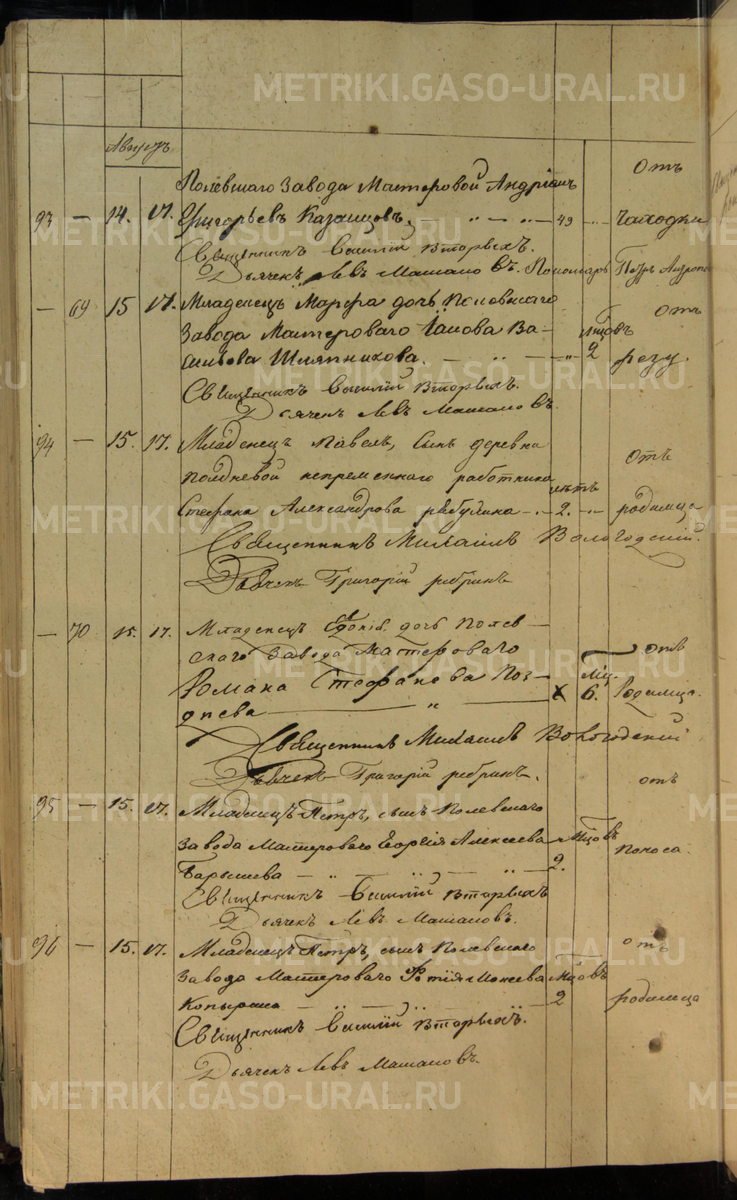 Августъ
Полевшаго Завода Мастеровой Андріянъ отъ
93 — 14. 17. Григорьевъ Казанцовъ. — „ — „ — 49 — чаходки
Священникъ Василій Вторыхъ.
Дьячекъ Левъ Машановъ. Пономарь Петръ
— 69 15 17. Младенецъ Марфа дочь Полевшаго отъ
Завода Мастероваго Іакова Ва- мцовъ
сильева Шляпникова. — „ — „ 2 резу.
Священникъ Василій Вторыхъ.
Дьячекъ Левъ Машановъ.
94 — 15. 17. Младенецъ Павелъ, Сынъ деревни отъ
Полдневой непременнаго работника летъ
Стефана Александрова рябухина — 2. — родимца
Священникъ Михаилъ Вологодскій.
Дьячекъ Григорій ребринъ
— 70 15. 17. Младенецъ дочь Полев- отъ
скаго Завода Мастероваго Мц.
Романа Стефанова Поз- 6. Родимца.
днева — „ —
Священникъ Михаилъ Вологодскій
Дьячекъ Григорій ребринъ.
95 — 15. 17. Младенецъ Петръ, сынъ Полевскаго отъ
Завода Мастероваго Георгія Алексеева мцовъ поноса.
Барышева — „ — „ — „ 2.
Священникъ Василій Вторыхъ
Дьячекъ Левъ Машановъ.
96 — 15. 17. Младенецъ Петръ, сынъ Полевскаго отъ
Завода Мастероваго Фотія Мокеева мцовъ
Копырина — „ — „ — „ 2 родимца
Священникъ Василій Вторыхъ.
Дьячекъ Левъ Машановъ.
METRIKI.GASO-URAL.RU